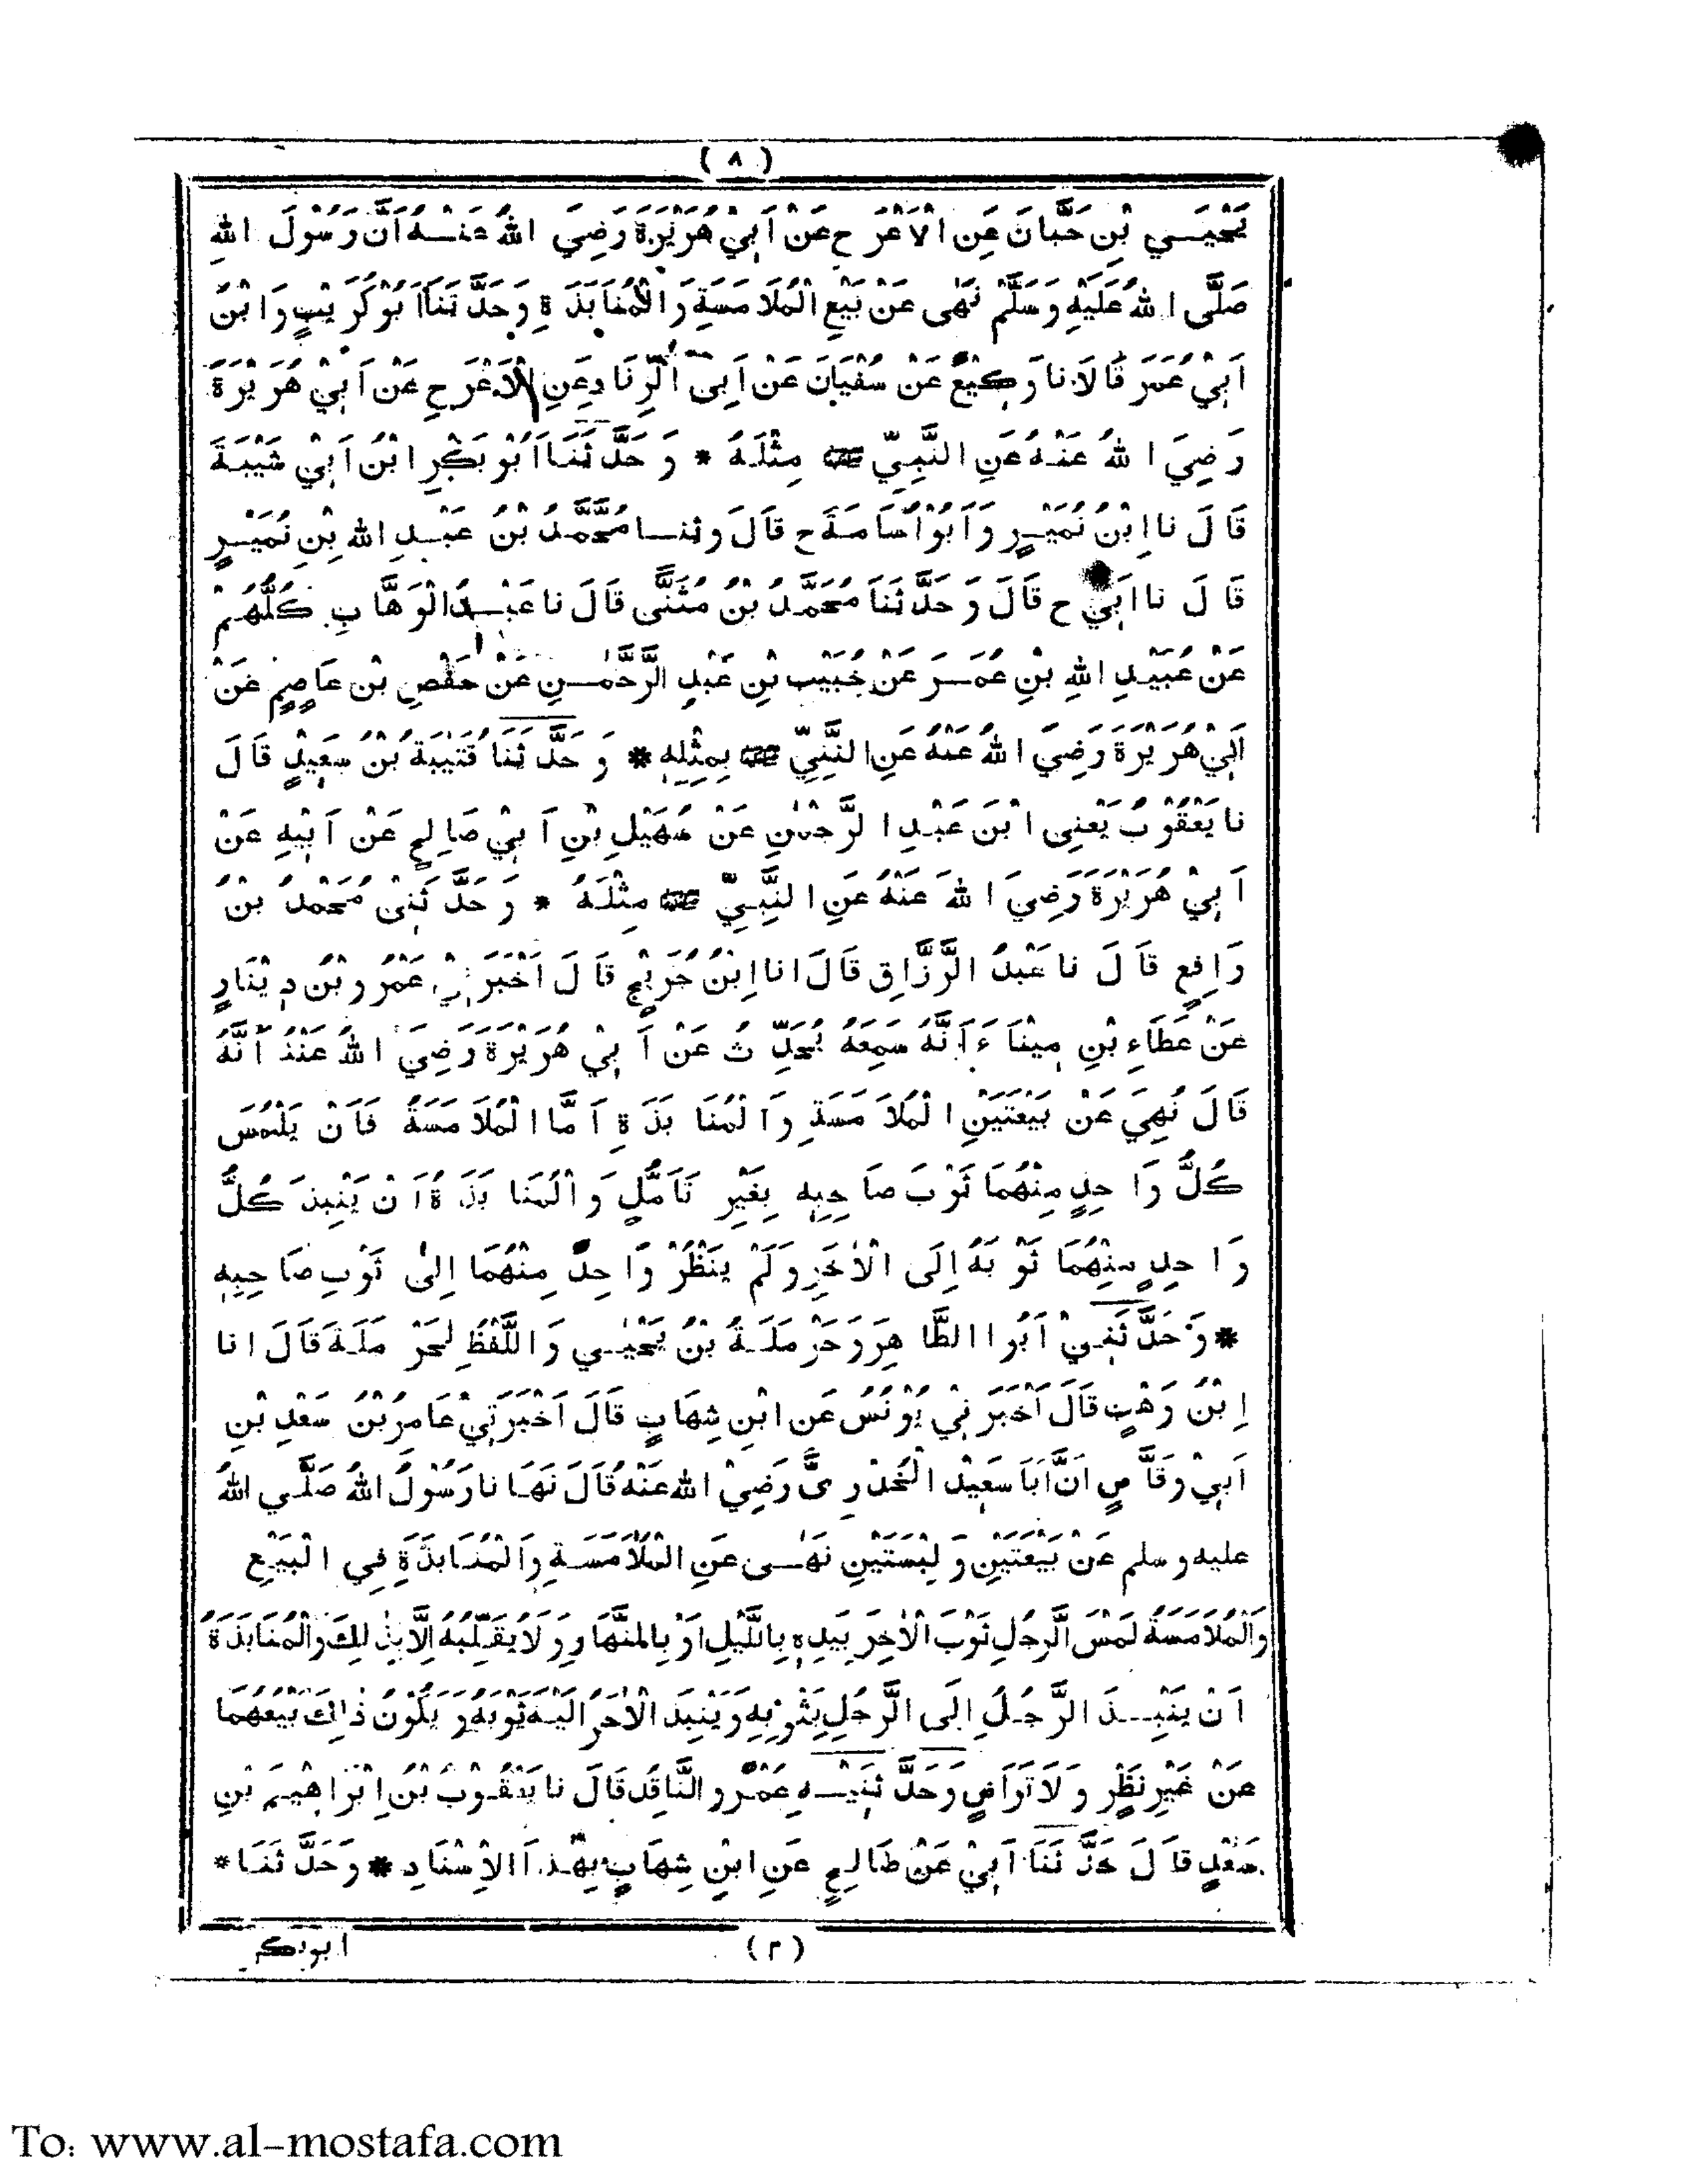 ( ٨ )
يَحْيَـــي بْنِ حَبَّانَ عَنِ الْاَعْرَجِ عَنْ اَبِيْ هُرَيْرَةَ رَضِيَ اللهُ عَنْـــهُ اَنَّ رَسُوْلَ اللهِ
صَلَّى اللهُ عَلَيْهِ وَسَلَّمَ نَهٰى عَنْ بَيْعِ الْمُلَا مَسَةِ وَالْمُنَابَذَةِ وَحَدَّثَنَا اَبُوْكُرَيْبٍ وَابْنُ
اَبِيْ عُمَرَ قَالَا نا وَكِيْعٌ عَنْ سُفْيَانَ عَنْ اَبِى الزِّنَادِ عَنِ الْاَعْرَجِ عَنْ اَبِيْ هُرَيْرَةَ
رَضِيَ اللهُ عَنْهُ عَنِ النَّبِيِّ ﷺ مِثْلَهُ * وَحَدَّثَنَا اَبُوْ بَكْرِ ابْنُ اَبِيْ شَيْبَةَ
قَالَ نا اِبْنُ نُمَيْرٍ وَاَبُوْ اُسَامَةَ ح قَالَ وثنـــا مُحَمَّدُ بْنُ عَبْـــدِ اللهِ بْنِ نُمَيْـــرٍ
قَالَ نا اَبِيْ ح قَالَ وَحَدَّثَنَا مُحَمَّدُ بْنُ مُثَنَّى قَالَ نا عَبْـــدُ الْوَهَّابِ كُلُّهُمْ
عَنْ عُبَيْدِ اللهِ بْنِ عُمَـــرَ عَنْ خُبَيْبِ بْنِ عَبْدِ الرَّحْمٰـــنِ عَنْ حَفْصِ بْنِ عَاصِمٍ عَنْ
اَبِيْ هُرَيْرَةَ رَضِيَ اللهُ عَنْهُ عَنِ النَّبِيِّ ﷺ بِمِثْلِهِ * وَحَدَّثَنَا قُتَيْبَةُ بْنُ سَعِيْدٍ قَالَ
نا يَعْقُوْبُ يَعْنِى ابْنَ عَبْدِ الرَّحْمٰنِ عَنْ سُهَيْلِ بْنِ اَبِيْ صَالِحٍ عَنْ اَبِيْهِ عَنْ
اَبِيْ هُرَيْرَةَ رَضِيَ اللهُ عَنْهُ عَنِ النَّبِيِّ ﷺ مِثْلَهُ * وَحَدَّثَنِىْ مُحَمَّدُ بْنُ
رَافِعٍ قَالَ نا عَبْدُ الرَّزَّاقِ قَالَ انا اِبْنُ جُرَيْجٍ قَالَ اَخْبَرَنِيْ عَمْرُو بْنُ دِيْنَارٍ
عَنْ عَطَاءِ بْنِ مِيْنَاءَ اَنَّهُ سَمِعَهُ يُحَدِّثُ عَنْ اَبِيْ هُرَيْرَةَ رَضِيَ اللهُ عَنْهُ اَنَّهُ
قَالَ نُهِيَ عَنْ بَيْعَتَيْنِ الْمُلَا مَسَةِ وَالْمُنَا بَذَةِ اَمَّا الْمُلَا مَسَةُ فَاَنْ يَلْمُسَ
كُلُّ وَاحِدٍ مِنْهُمَا ثَوْبَ صَاحِبِهِ بِغَيْرِ تَاَمُّلٍ وَالْمُنَا بَذَةُ اَنْ يَنْبِذَ كُلُّ
وَاحِدٍ مِنْهُمَا ثَوْبَهُ اِلَى الْاٰخَرِ وَلَمْ يَنْظُرْ وَاحِدٌ مِنْهُمَا اِلىٰ ثَوْبِ صَاحِبِهِ
* وَحَدَّثَنِـيْ اَبُوا الطَّاهِرِ وَحَرْمَلَـةُ بْنُ يَحْيٰـــي وَاللَّفْظُ لِحَرْمَلَـةَ قَالَ انا
اِبْنُ وَهْبٍ قَالَ اَخْبَرَنِيْ يُوْنُسُ عَنِ ابْنِ شِهَابٍ قَالَ اَخْبَرَنِيْ عَامِرُ بْنُ سَعْدِ بْنِ
اَبِيْ وَقَّاصٍ اَنَّ اَبَا سَعِيْدِ الْخُدْرِىَّ رَضِيَ اللهُ عَنْهُ قَالَ نَهَـا نا رَسُوْلُ اللهِ صَلَّـي اللهُ
عليه وسلم عَنْ بَيْعَتَيْنِ وَلِبْسَتَيْنِ نَهٰـــى عَنِ الْمُلَا مَسَـةِ وَالْمُنَـابَذَةِ فِي الْبَيْعِ
وَالْمُلَا مَسَةُ لَمْسُ الرَّجُلِ ثَوْبَ الْاٰخَرِ بِيَدِهِ بِاللَّيْلِ اَوْ بِالنَّهَارِ وَلَا يُقَلِّبُهُ اِلَّا بِذٰلِكَ وَالْمُنَابَذَةُ
اَنْ يَنْبِـــذَ الرَّجُلُ اِلَى الرَّجُلِ بِثَوْبِهِ وَيَنْبِذَ الْاٰخَرُ اِلَيْهِ ثَوْبَهُ وَيَكُوْنُ ذٰلِكَ بَيْعَهُمَا
عَنْ غَيْرِ نَظَرٍ وَلَا تَرَاضٍ وَحَدَّثَنِيْـــهِ عَمْرُو النَّاقِدُ قَالَ نا يَعْقُوْبُ بْنُ اِبْرَاهِيْمَ بْنِ
سَعْدٍ قَالَ حَدَّثَنَا اَبِيْ عَنْ صَالِحٍ عَنِ ابْنِ شِهَابٍ بِهٰذَا الْاِسْنَادِ * وَحَدَّثَنَا *
(٢)
ابوبكر
To: www.al-mostafa.com